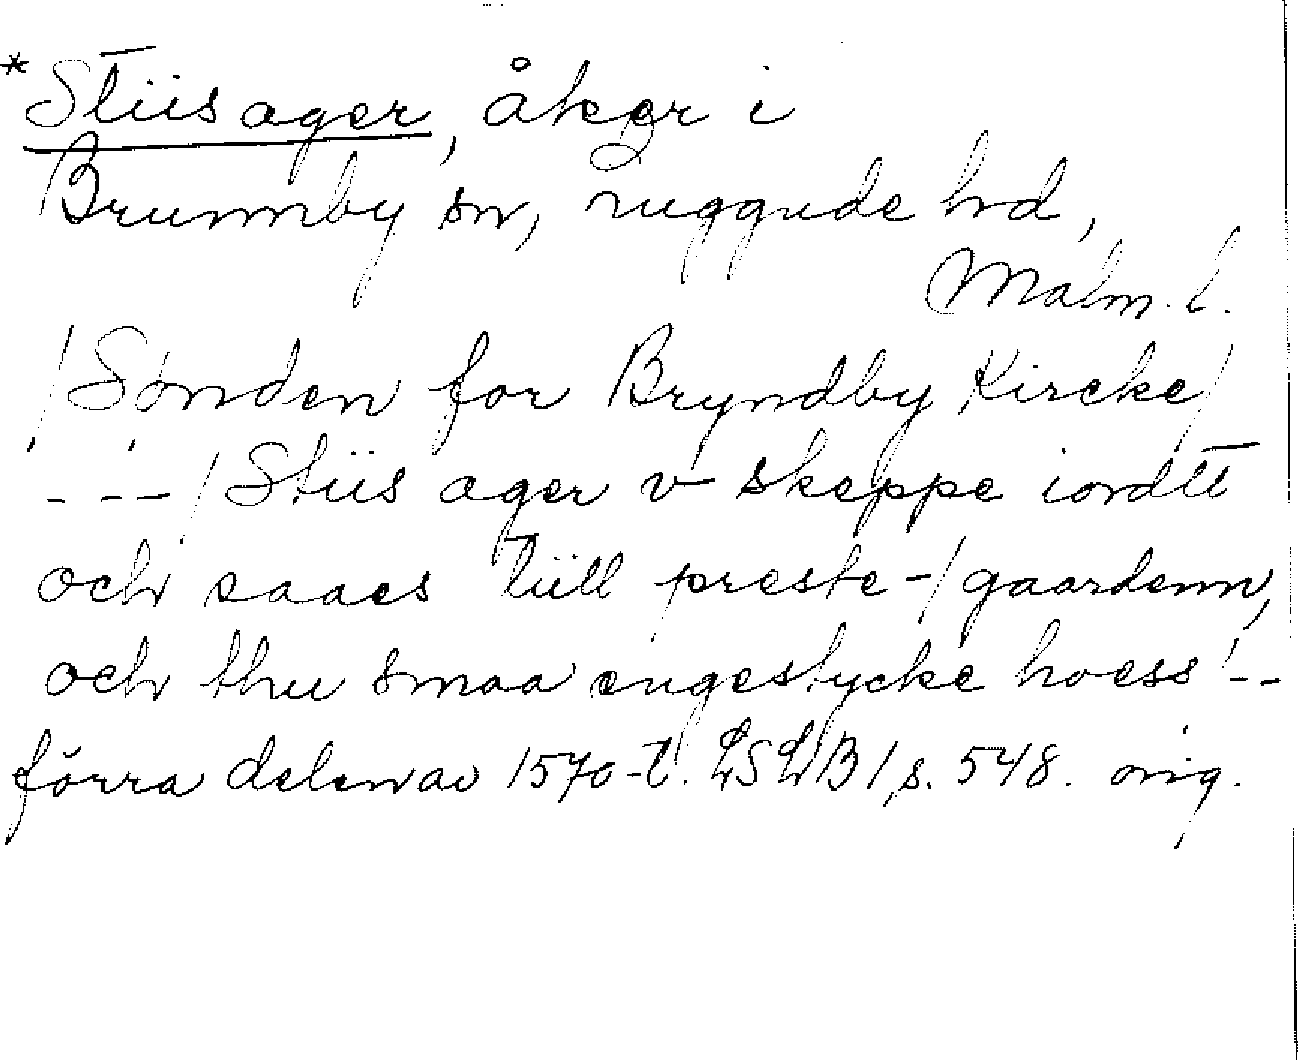 *Stiis ager, åker i
Brunnby sn, ruggude hd,
Malm. l.
/Sönden for Bryndby Kircke/
---/Stiis ager v skeppe iordtt
och saaes tiill preste-/gaardenn,
och thu smaa engestycke hoess/--
förra delen av 1570-t. LSLB1 s. 548. orig.